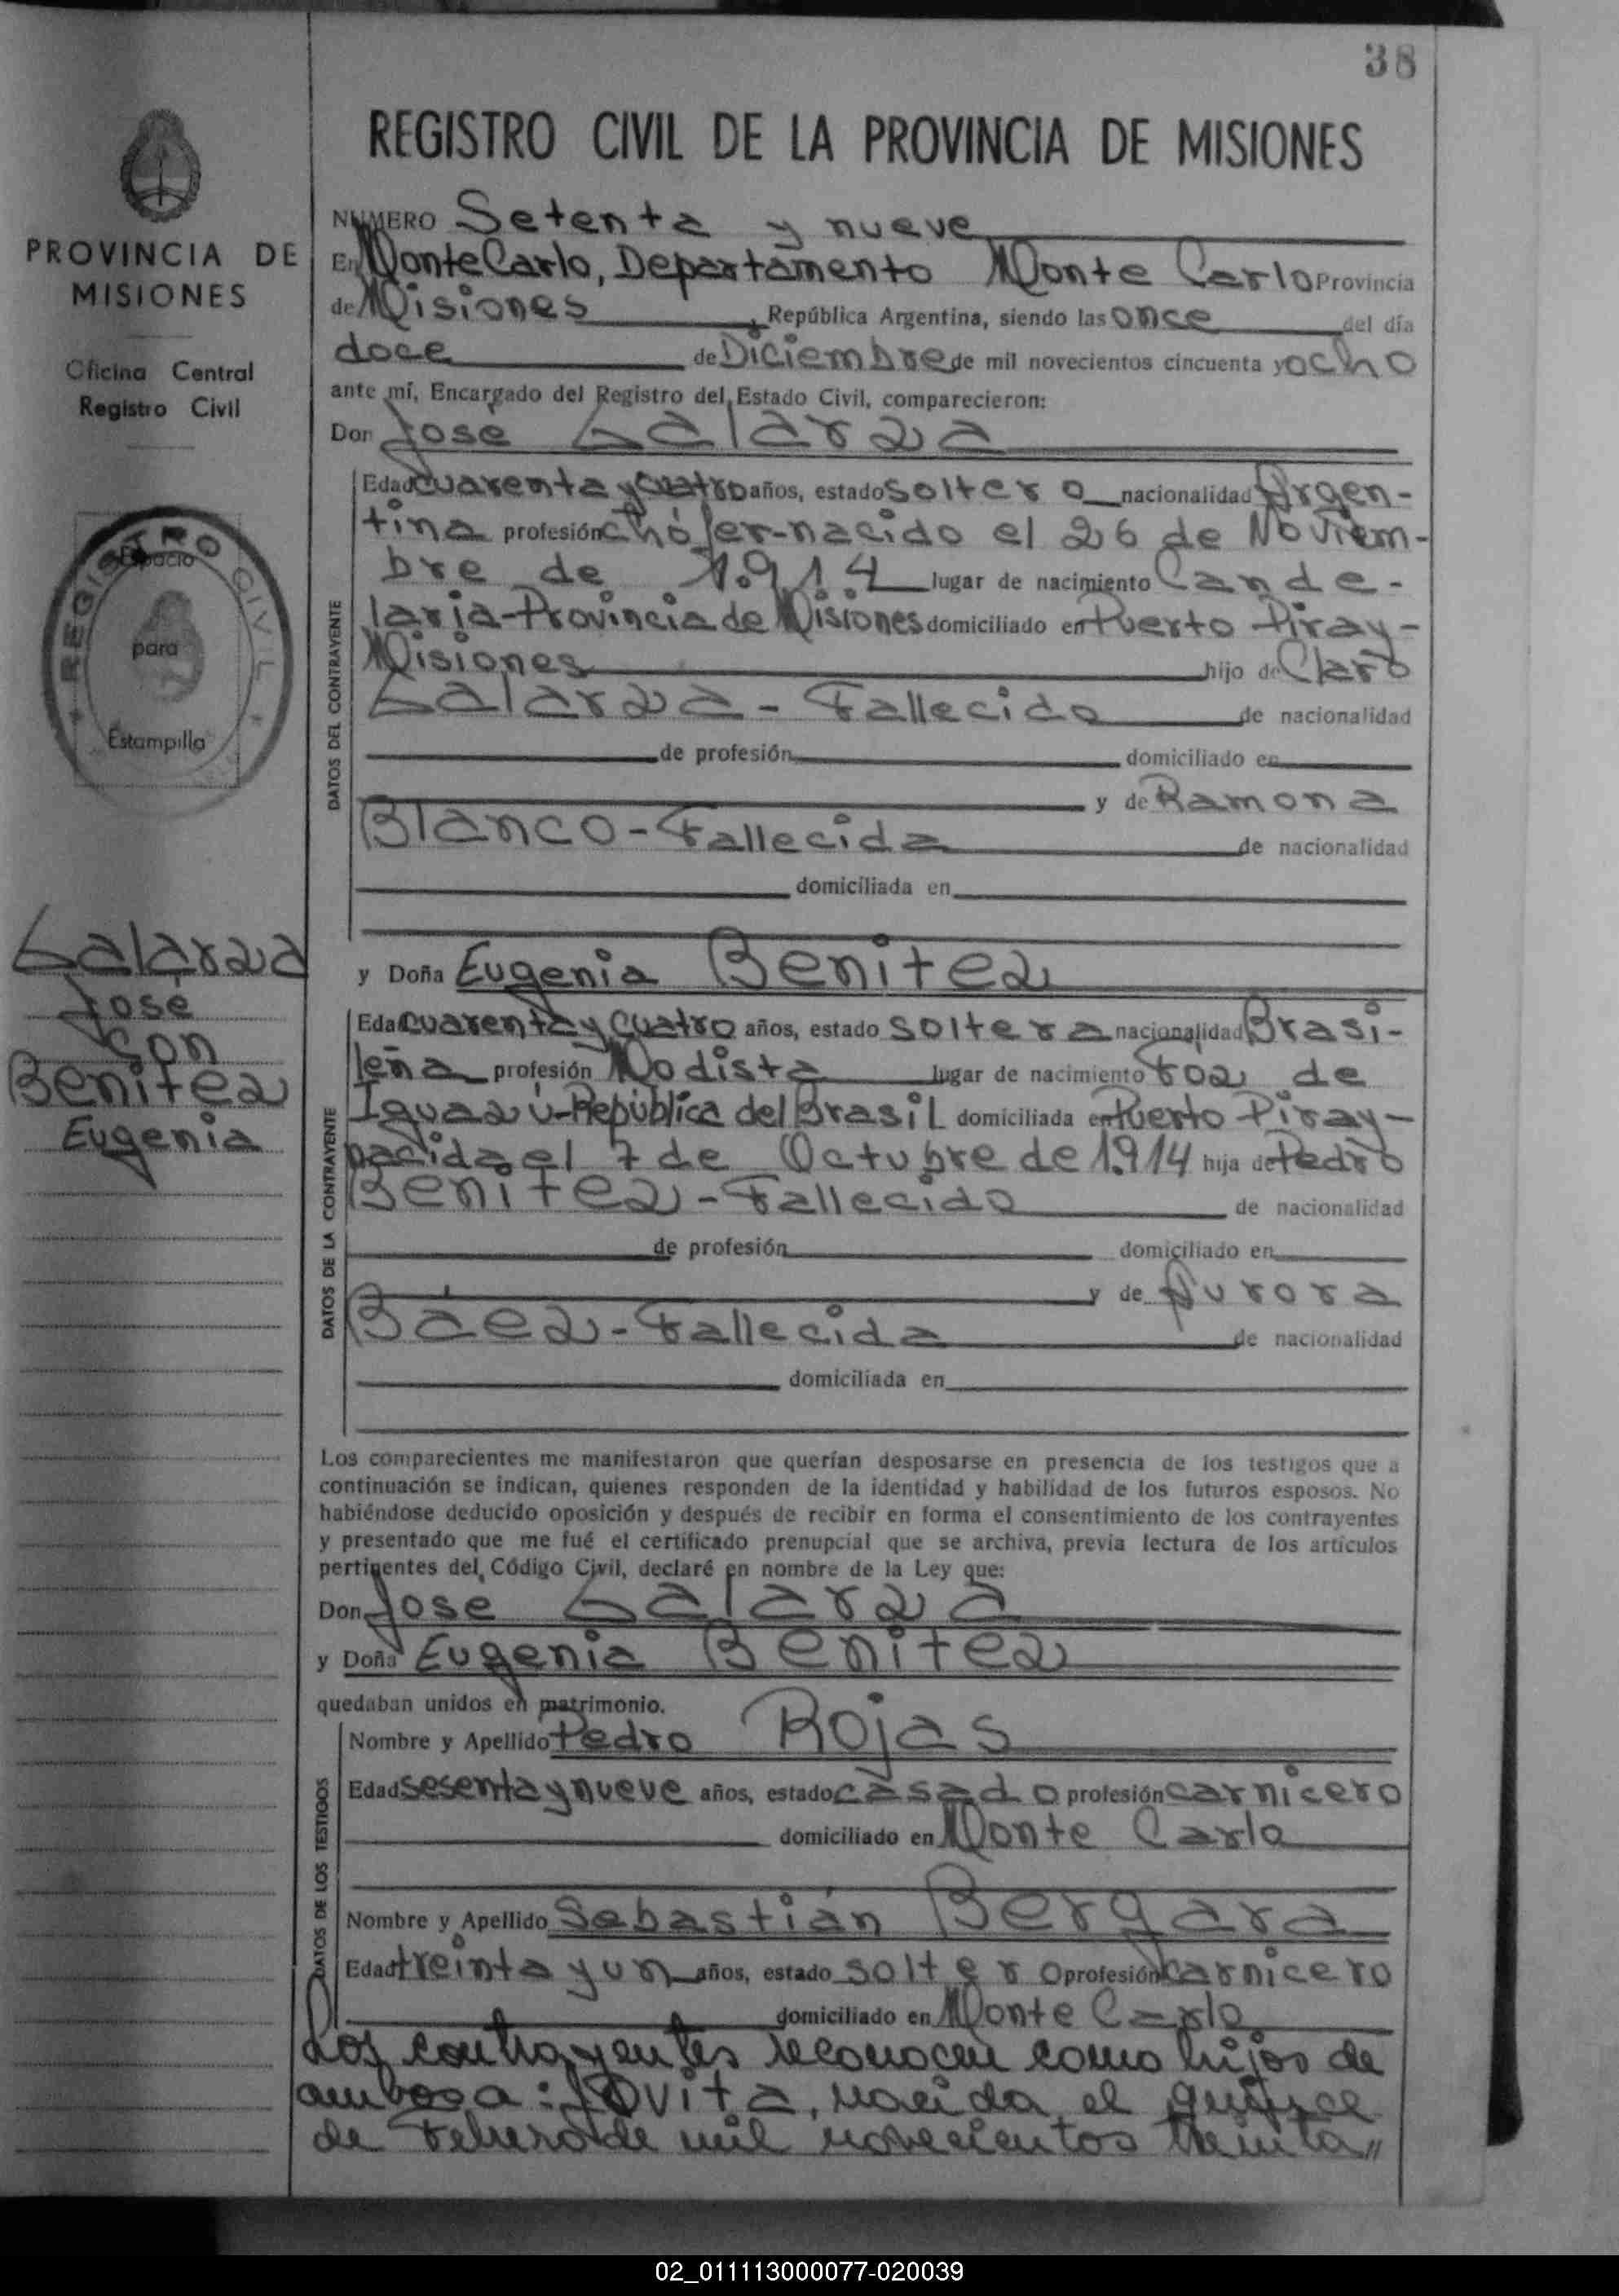 38
REGISTRO CIVIL DE LA PROVINCIA DE MISIONES
PROVINCIA DE
MISIONES
Oficina Central
Registro Civil
REGISTRO CIVIL
Espacio
para
Estampilla
Galarza
José
con
Benitez
Eugenia
NUMERO Setenta y nueve
En Monte Carlo, Departamento Monte Carlo Provincia
de Misiones, República Argentina, siendo las once del día
doce de Diciembre de mil novecientos cincuenta y ocho
ante mí, Encargado del Registro del Estado Civil, comparecieron:
Don José Galarza
DATOS DEL CONTRAYENTE
Edad cuarenta y cuatro años, estado soltero nacionalidad Argen-
tina profesión chófer-nacido el 26 de Noviem-
bre de 1.914 lugar de nacimiento Cande-
laria-Provincia de Misiones domiciliado en Puerto Piray-
Misiones hijo de Claro
Galarza - Fallecido de nacionalidad
de profesión domiciliado en
y de Ramona
Blanco - Fallecida de nacionalidad
domiciliada en
y Doña Eugenia Benitez
DATOS DE LA CONTRAYENTE
Edad cuarenta y cuatro años, estado soltera nacionalidad Brasi-
leña profesión Modista lugar de nacimiento Foz de
Iguazú-República del Brasil domiciliada en Puerto Piray-
nacida el 7 de Octubre de 1.914 hija de Pedro
Benitez - Fallecido de nacionalidad
de profesión domiciliado en
y de Aurora
Báez - Fallecida de nacionalidad
domiciliada en
Los comparecientes me manifestaron que querían desposarse en presencia de los testigos que a
continuación se indican, quienes responden de la identidad y habilidad de los futuros esposos. No
habiéndose deducido oposición y después de recibir en forma el consentimiento de los contrayentes
y presentado que me fué el certificado prenupcial que se archiva, previa lectura de los artículos
pertinentes del Código Civil, declaré en nombre de la Ley que:
Don José Galarza
y Doña Eugenia Benitez
quedaban unidos en matrimonio.
DATOS DE LOS TESTIGOS
Nombre y Apellido Pedro Rojas
Edad sesenta y nueve años, estado casado profesión carnicero
domiciliado en Monte Carlo
Nombre y Apellido Sebastián Bergara
Edad treinta y un años, estado soltero profesión carnicero
domiciliado en Monte Carlo
Los contrayentes reconocen como hijos de
ambos a: Jovita, nacida el quince
de Febrero de mil novecientos treinta"
02_011113000077-020039